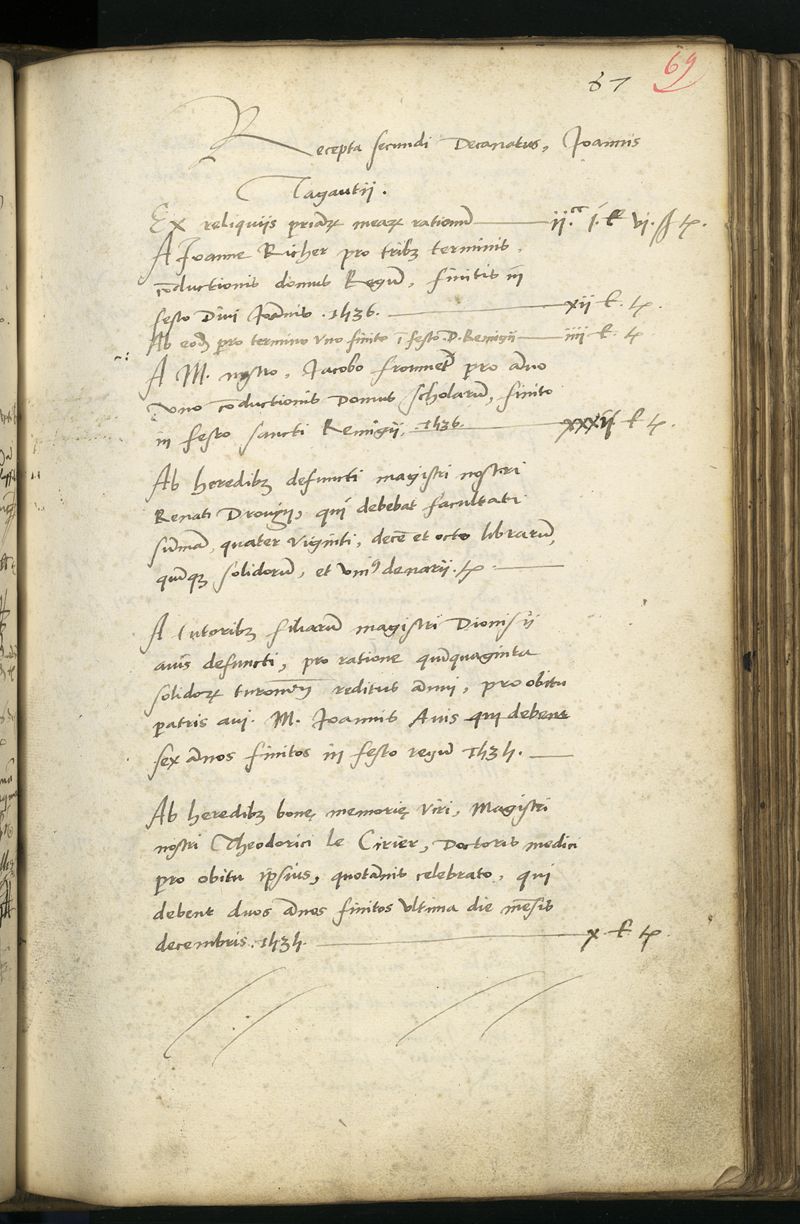 67 69
Recepta secundi Decanatus, Joannis
Tagautii.
Ex reliquiis priarꝝ mearꝝ rationū
A Joanne Richer pro tribꝫ terminis
cōductionis domus Regū, finitis in
festo Divi Joānis. 1536. xii ℔. tȷ.
Ab eodē pro termino uno finito ī festo .D. Remigii iiii ℔ t
A M. nostro, Jacobo Froment pro āno
uno cōductionis Domus scholarū, finito
in festo sancti Remigii, 1536. xxxii ℔ t.
Ab heredibꝫ defuncti magistri nostri
Renati Drouyn, qui debebat facultati
sūmā, quater viginti, decē et octo librarū,
quīqꝫ solidorū, et uniꝰ denarii. t.
A tutoribꝫ filiarū magistri Dionisii
avis defuncti, pro ratione quīquaginta
solidorꝝ reditus ānui, pro obitu
patris avi. M. Joannis Avis qui debent
sex ānos finitos in festo regū 1535.
Ab heredibꝫ bonę memorię viri, Magistri
nostri Theodorici le Cirier, Doctoris medici
pro obitu ipsius, quotānis celebrato, qui
debent duos ānos finitos ultima die mēsis
decembris. 1535. x ℔ t